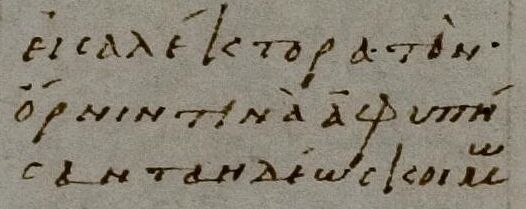 εἰς ἀλέκτορα τὸν·
ὄρνιν τινὰ ἀφυπνή
σαντα ἡδέως κοιμω